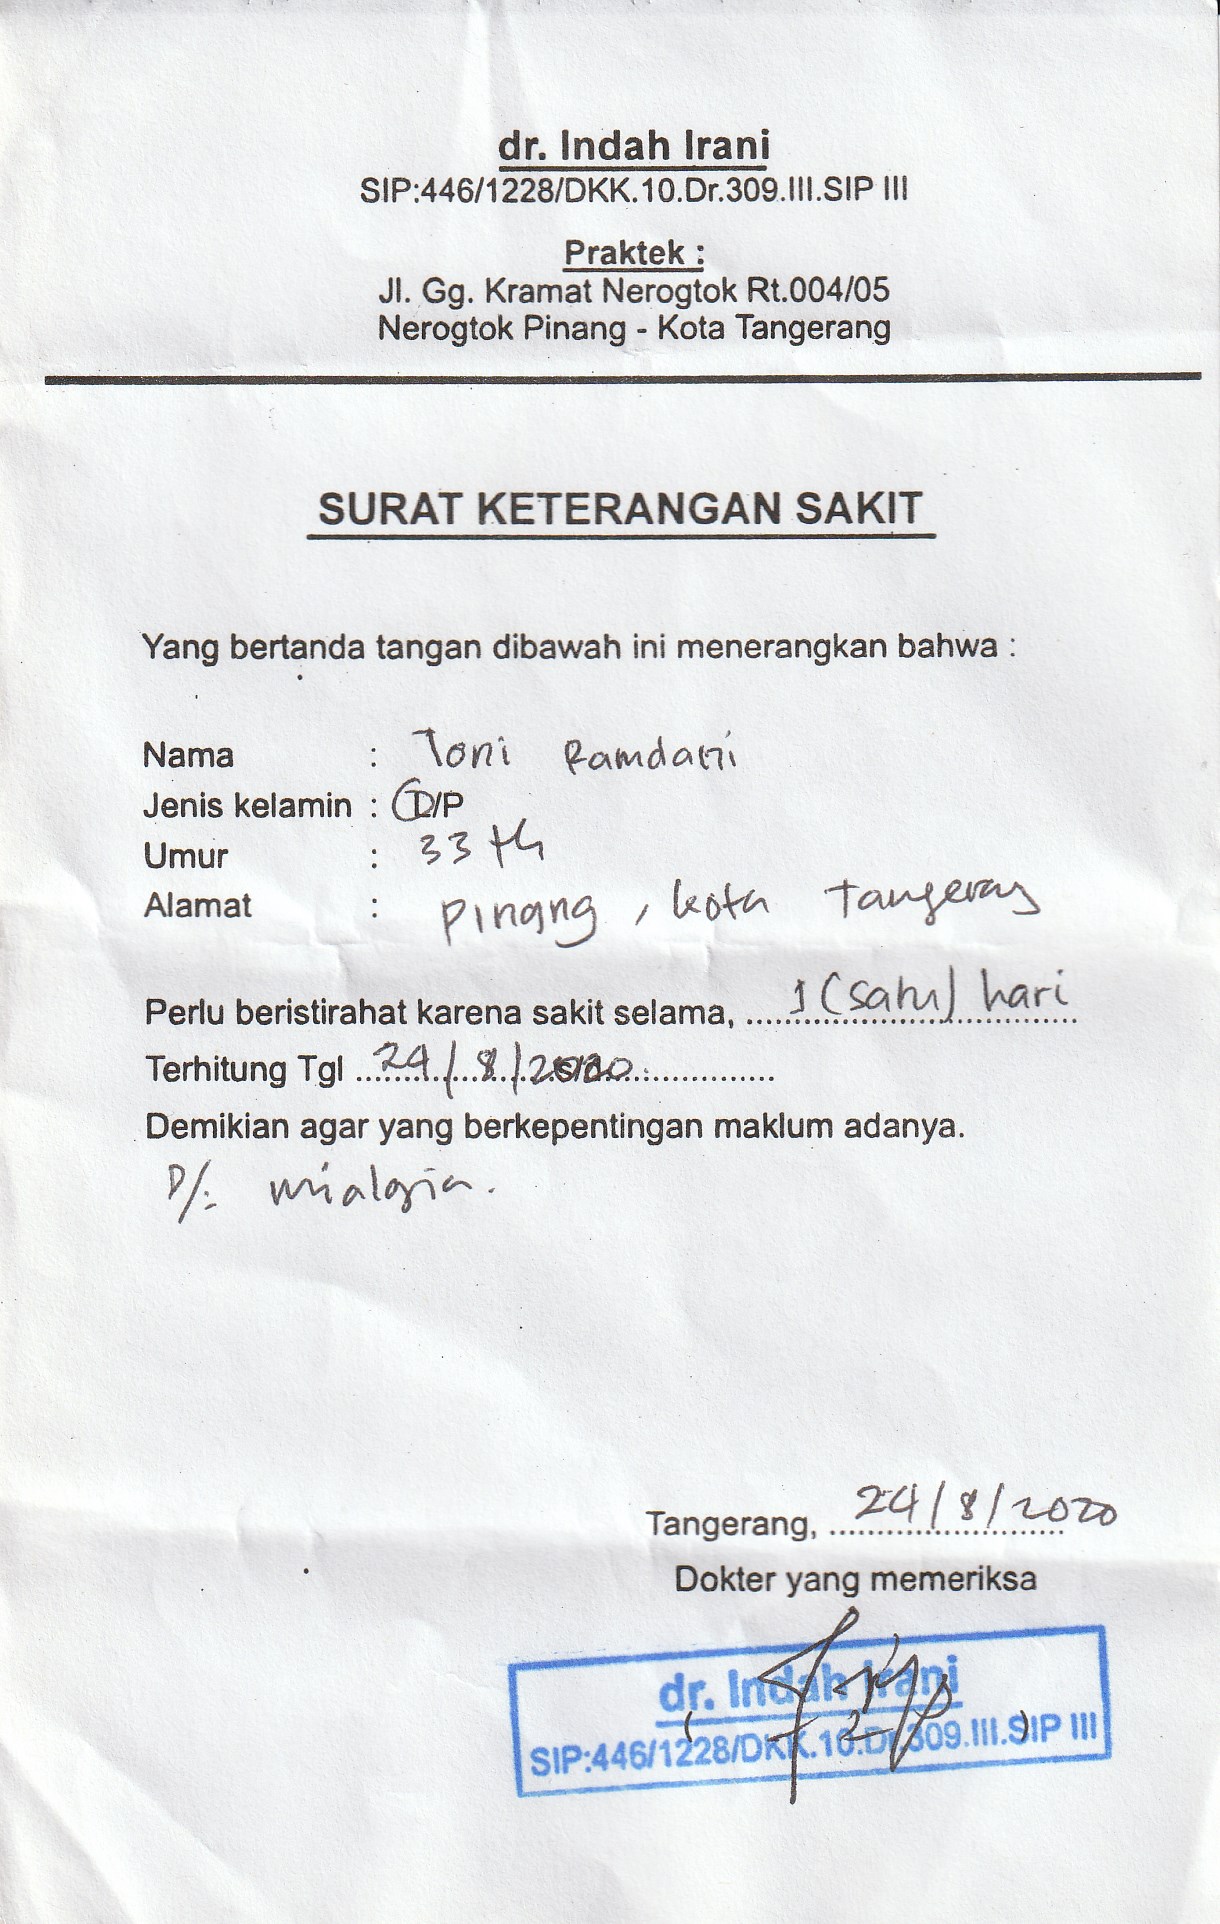 dr. Indah Irani
SIP:446/1228/DKK.10.Dr.309.III.SIP III
Praktek :
Jl. Gg. Kramat Nerogtok Rt.004/05
Nerogtok Pinang - Kota Tangerang
SURAT KETERANGAN SAKIT
Yang bertanda tangan dibawah ini menerangkan bahwa :
Nama : Toni Ramdani
Jenis kelamin : L/P
Umur : 33 th
Alamat : Pinang, kota Tangerang
Perlu beristirahat karena sakit selama, 1 (satu) hari
Terhitung Tgl 24/8/2020
Demikian agar yang berkepentingan maklum adanya.
D/: mialgia.
Tangerang, 24/8/2020
Dokter yang memeriksa
dr. Indah Irani
SIP:446/1228/DKK.10.Dr.309.III.SIP III